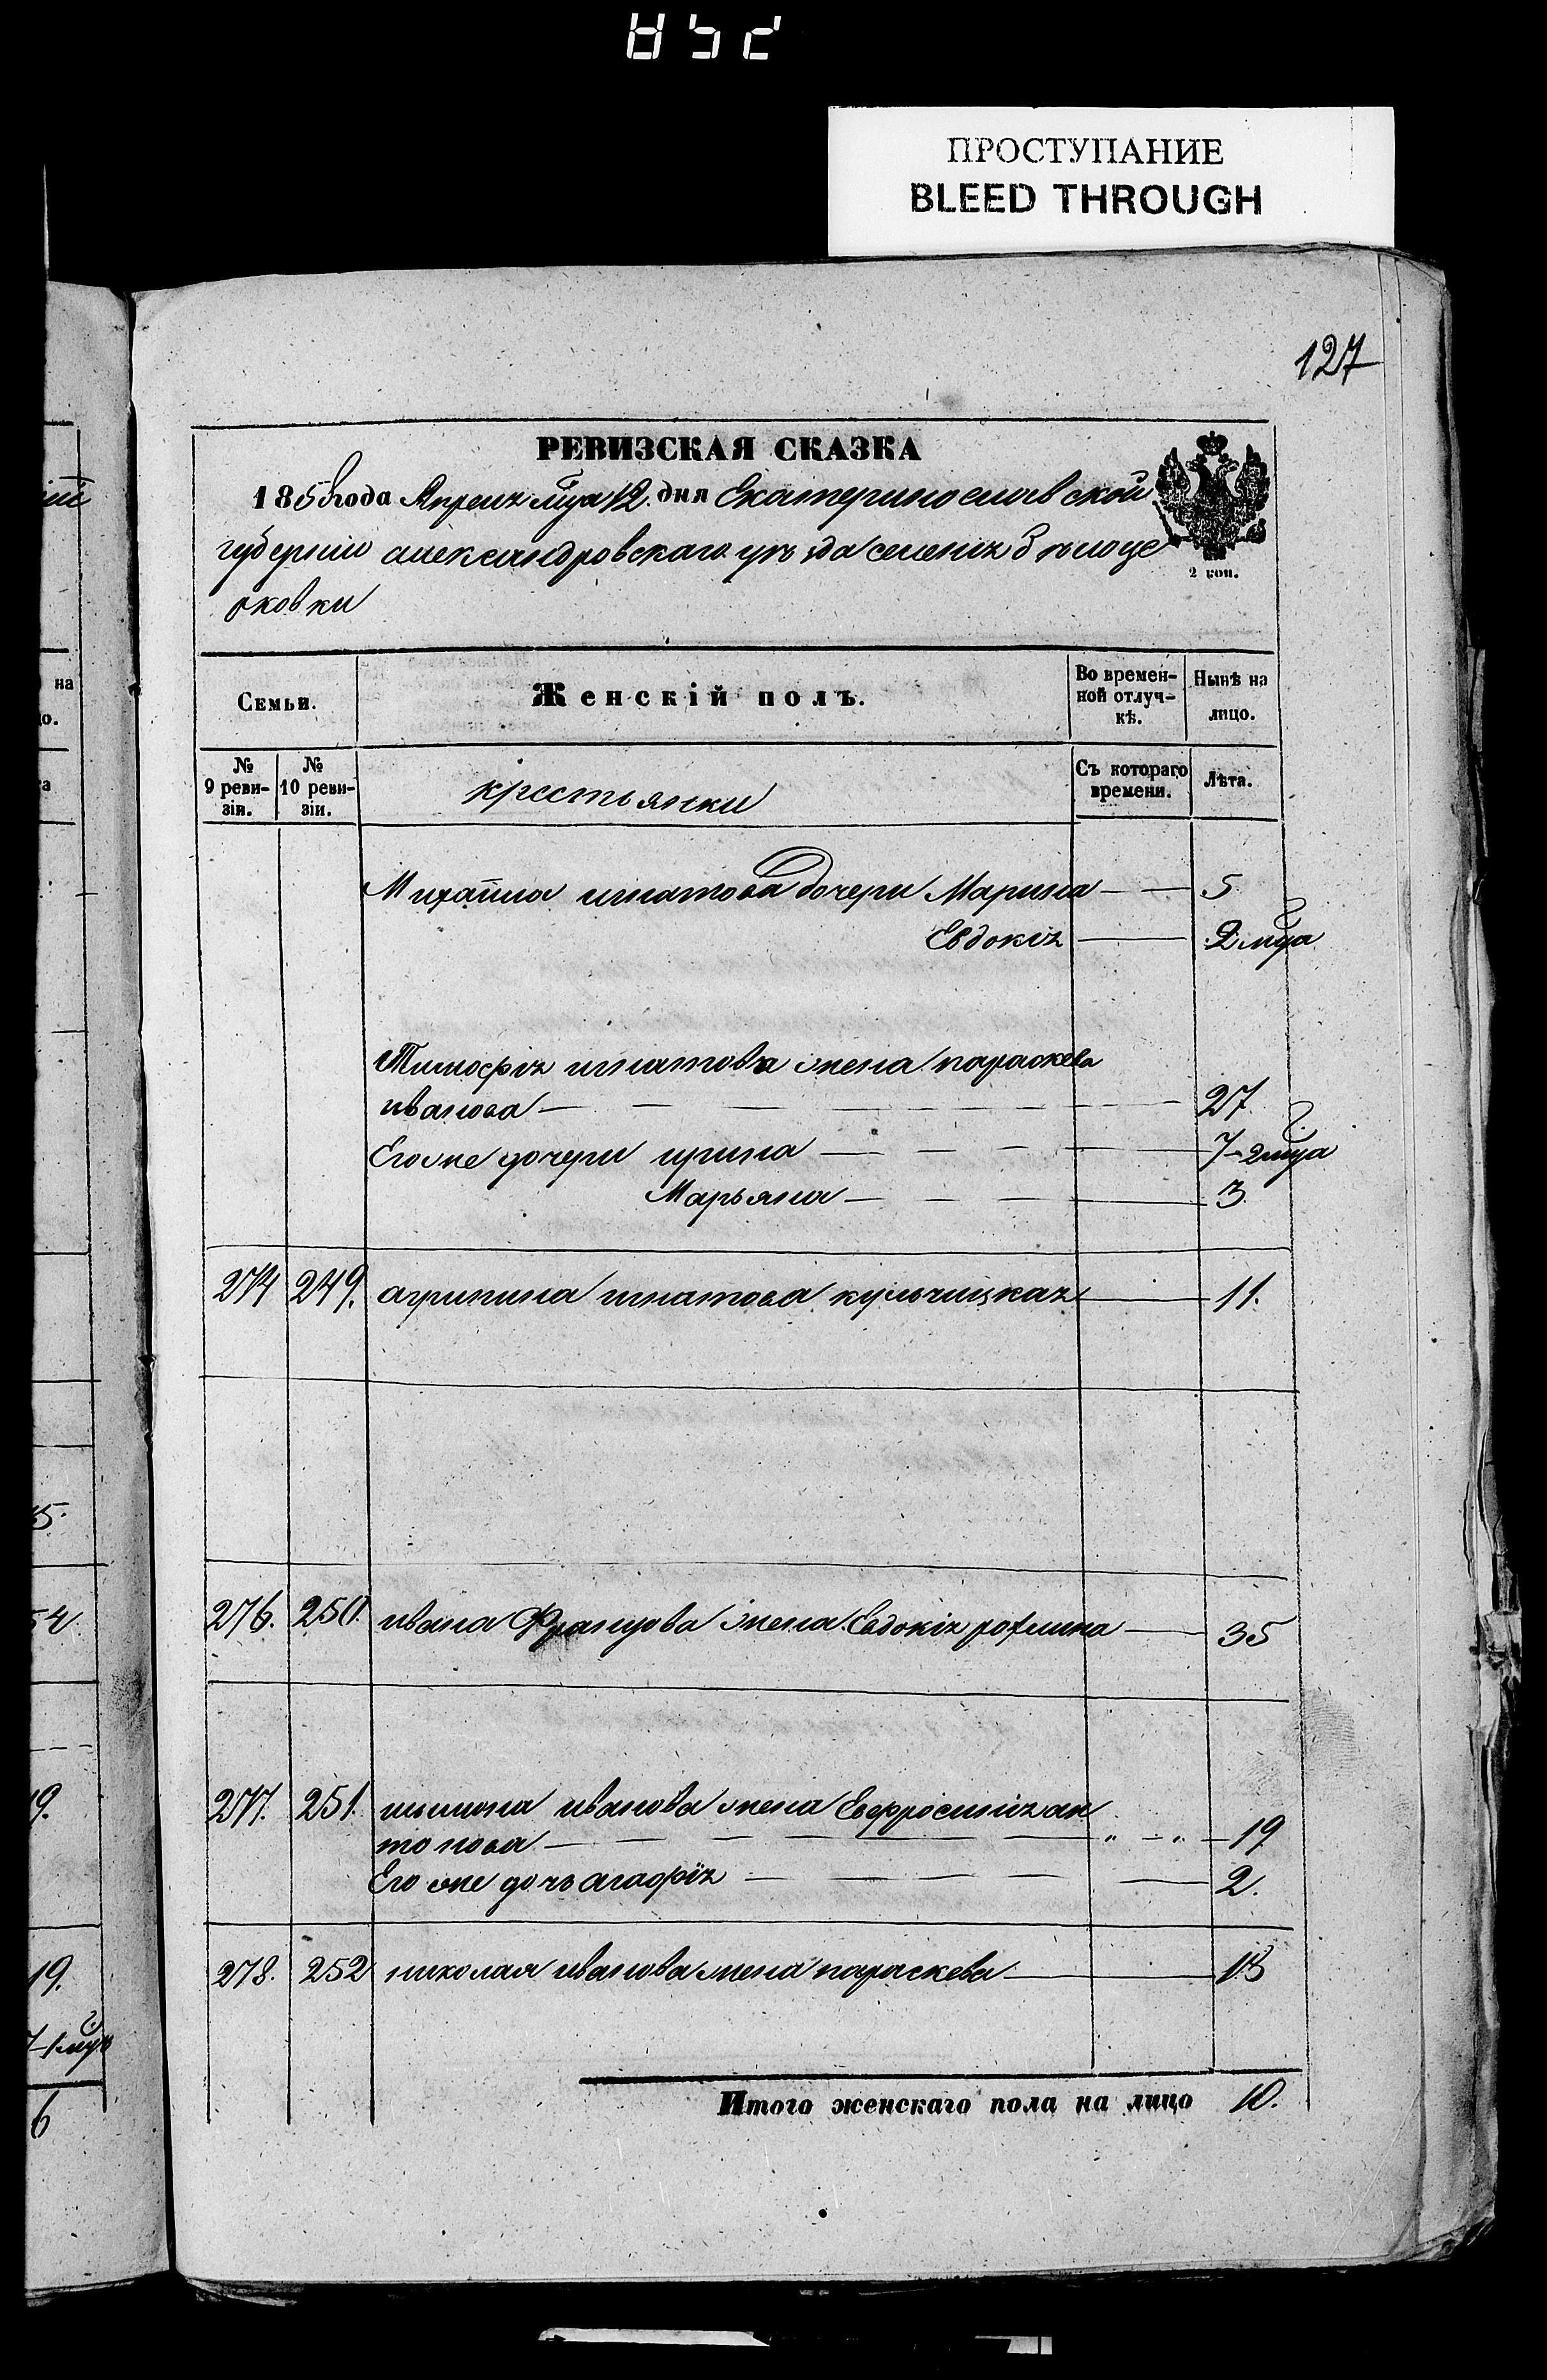 ПРОСТУПАНИЕ
BLEED THROUGH
127
РЕВИЗСКАЯ СКАЗКА
1858 года Апреля мца 12. дня Екатеринославской
губернии александровскаго уѣзда селенія бѣлоце
рковки
2 коп.
Семьи.
Женскій полъ.
Во времен-
ной отлуч-
кѣ.
Нынѣ на
лицо.
№
9 реви-
зіи.
№
10 реви-
зіи.
крестьянки
Съ котораго
времени.
Лѣта.
Михаила игнатова дочери Марина — — 5
Евдокія — 2 мца
Тимофія игнатова жена параскева
иванова — — — — — — — 27
Его же дочери ирина — — — — 7-2 мца
Марьяна — — — — 3.
274 249. агрипина игнатова кульчицкая — 11.
276. 250. ивана Францова жена Евдокія — 35
277. 251. ивана жена Евфросинія ан
тонова — — — — — „ — „ — 19
Его же дочь агафія — — — — 2.
278. 252 николая иванова жена параскева — 18
Итого женскаго пола на лицо 10.